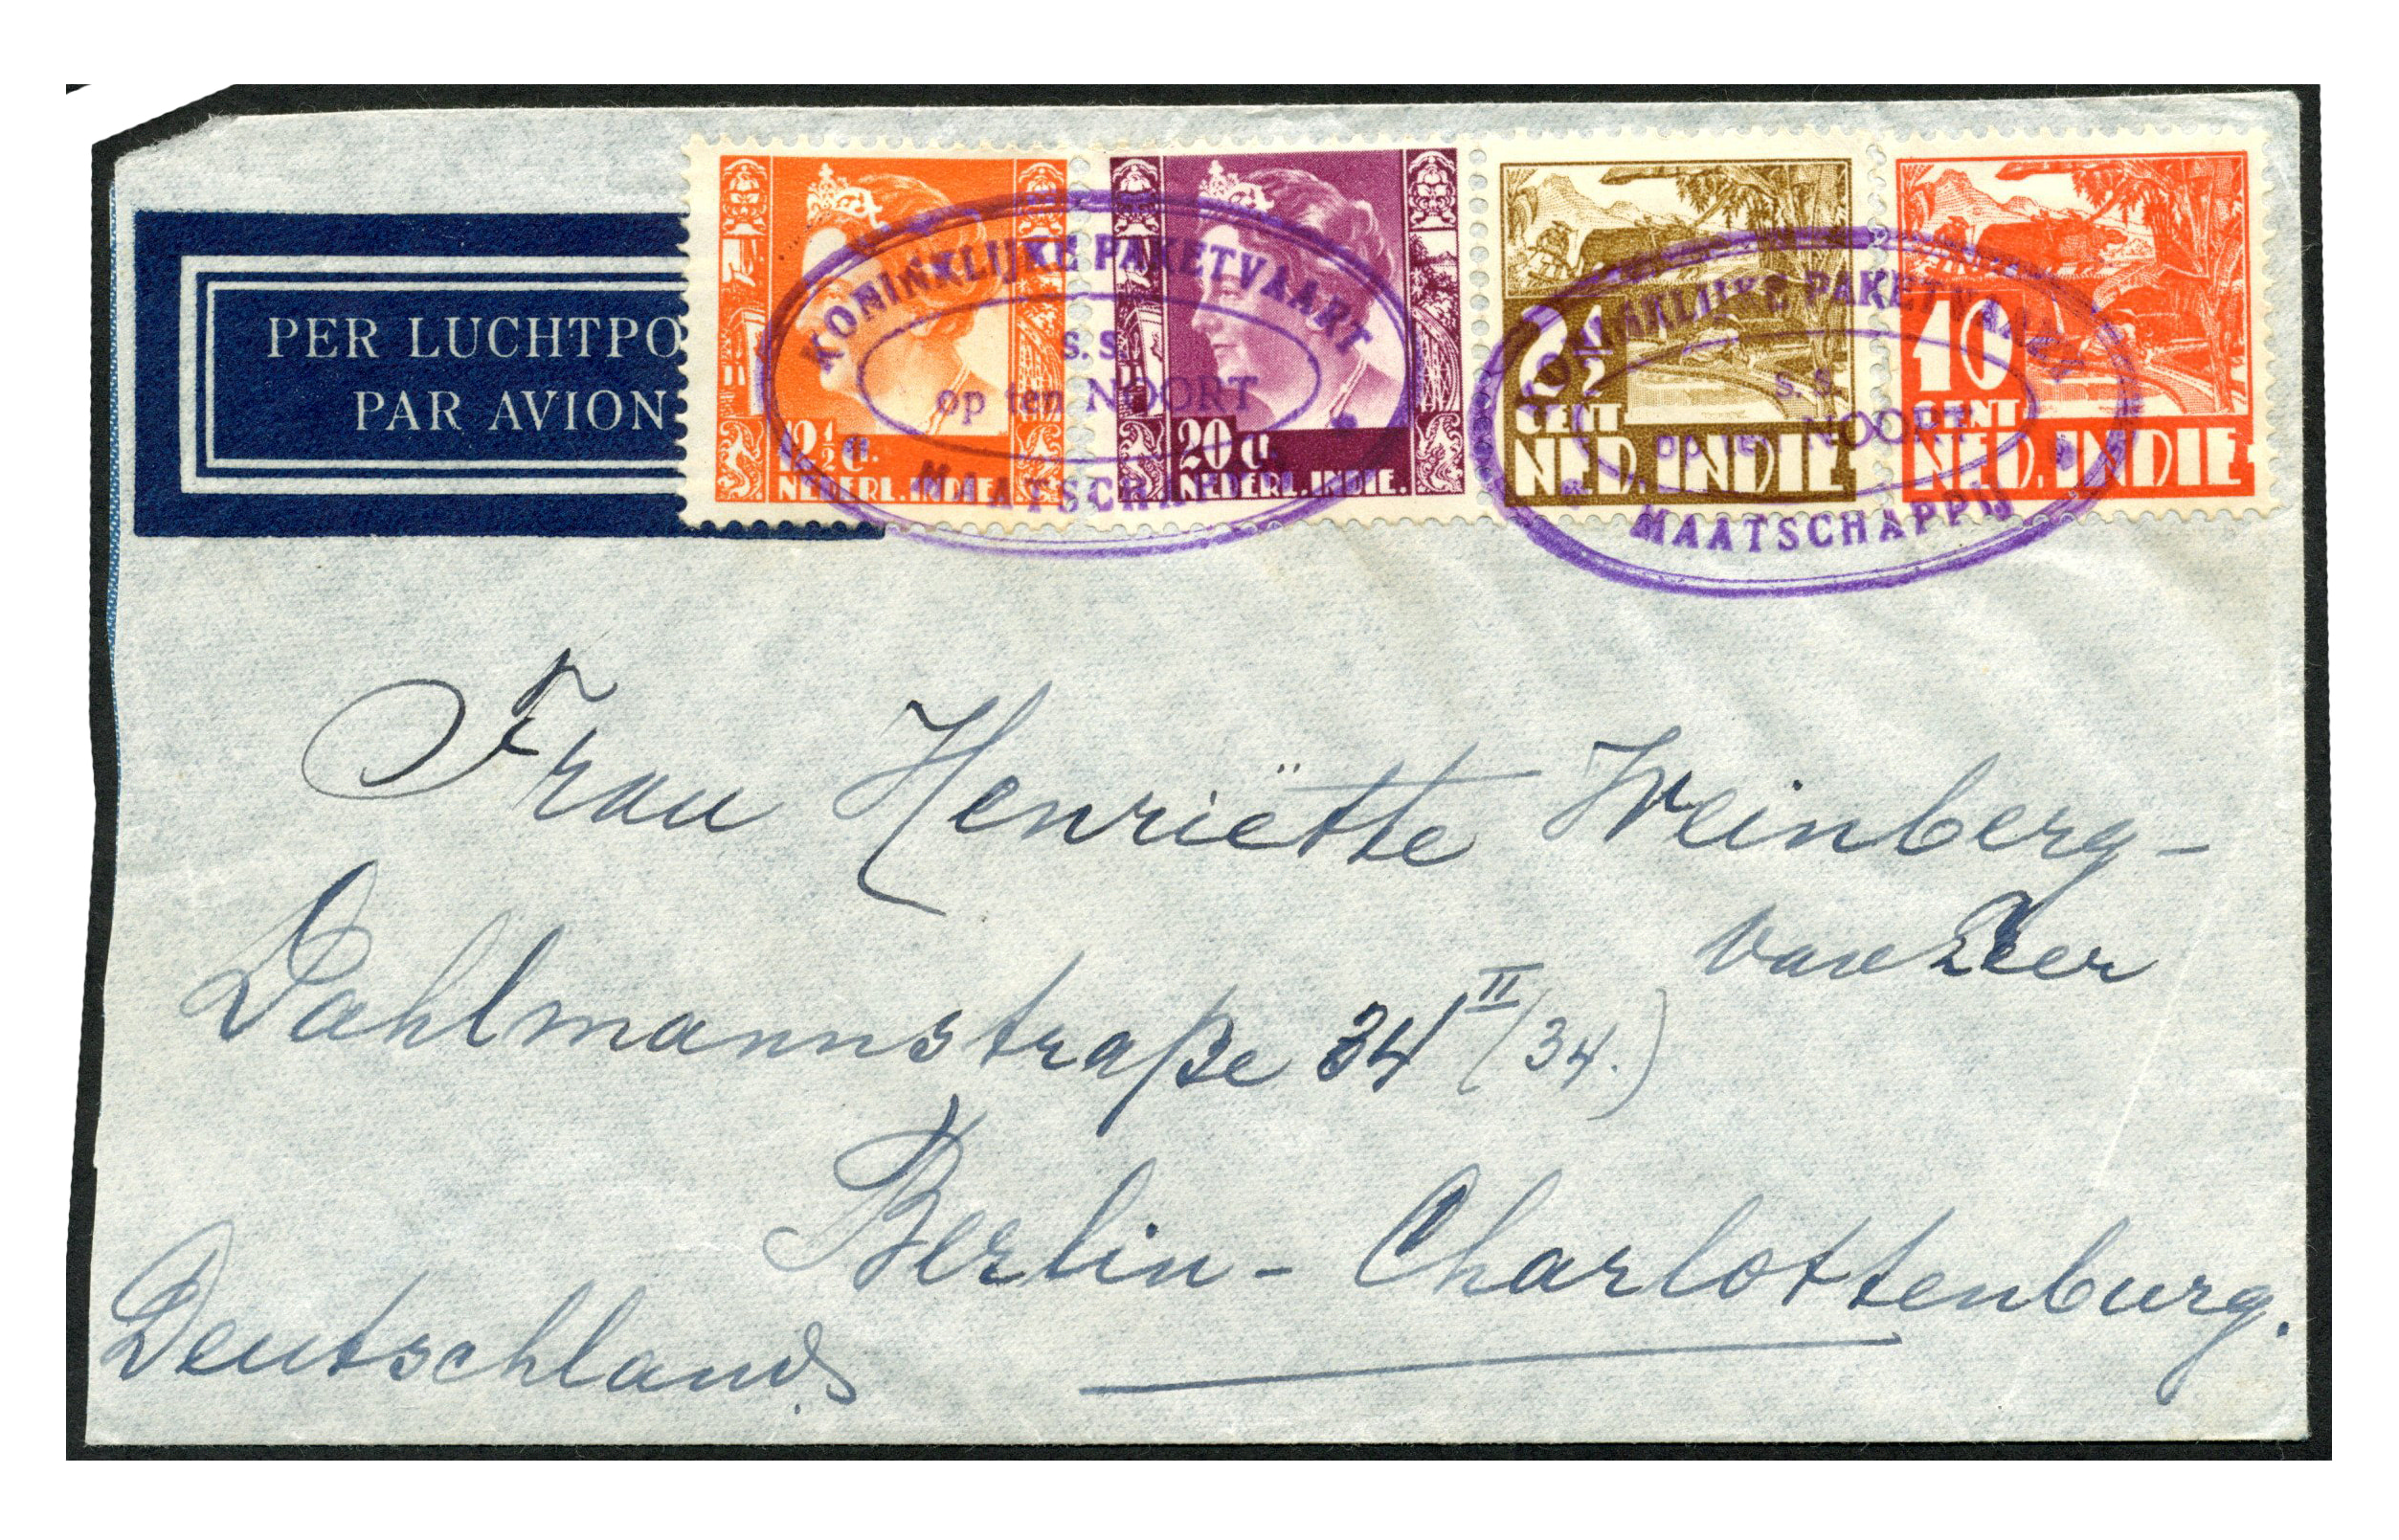 PER LUCHTPO
PAR AVION
12½ ct.
NEDERL. INDIE.
20 ct.
NEDERL. INDIE.
2½
CENT
NED. INDIE
10
CENT
NED. INDIE
KONINKLIJKE PAKETVAART
S.S.
op ten NOORT
MAATSCHAPPIJ
KONINKLIJKE PAKETVAART
S.S.
op ten NOORT
MAATSCHAPPIJ
Frau Henriëtte Weinberg-
van Leer
Dahlmannstraße 34 II (34.)
Berlin - Charlottenburg.
Deutschland.